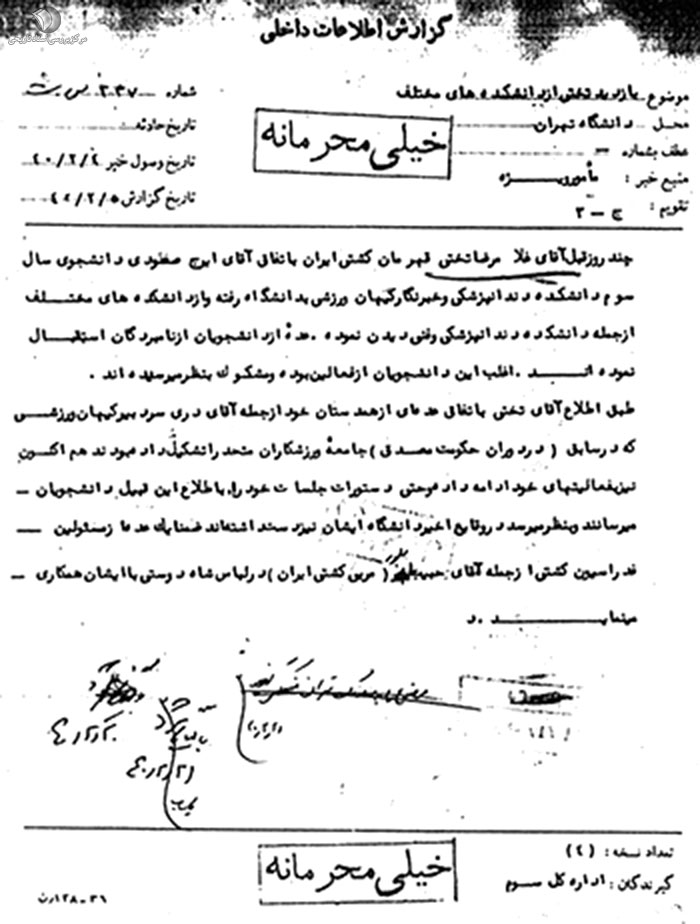 مرکز بررسی اسناد تاریخی
گزارش اطلاعات داخلی
موضوع بازدید تختی از دانشکده های مختلف
شماره ۲۳۴۷ س ت
محل دانشگاه تهران
تاریخ حادثه
خیلی محرمانه
عطف بشماره —
تاریخ وصول خبر ۴۰/۲/۴
منبع خبر : مأمور ویژه
تاریخ گزارش ۴۰/۲/۵
تقویم : ج – ۲
چند روز قبل آقای غلامرضا تختی قهرمان کشتی ایران باتفاق آقای ایرج دانشجوی سال
سوم دانشکده دندانپزشکی و خبرنگار کیهان ورزشی بدانشگاه رفته و از دانشکده های مختلف
از جمله دانشکده دندانپزشکی وفنی دیدن نموده . عدهٔ از دانشجویان از نامبردگان استقبال
نموده اند . اغلب این دانشجویان از فعالین بوده و مشکوک بنظر میرسیده اند .
طبق اطلاع آقای تختی باتفاق عده ای از همدستان خود از جمله آقای دری سردبیر کیهان ورزشی
که در سابق ( در دوران حکومت مصدق ) جامعهٔ ورزشکاران متحد را تشکیل داده بودند هم اکنون
نیز بفعالیتهای خود ادامه داده و حتی دستورات جلسات خود را باطلاع این قبیل دانشجویان –
میرسانند و بنظر میرسد در وقایع اخیر دانشگاه ایشان نیز دست داشته اند ضمنا یک عده از مسئولین –
فدراسیون کشتی از جمله آقای حبیب بلور ( مربی کشتی ایران ) در لباس شاه دوستی با ایشان همکاری –
مینمایند . د
تعداد نسخه : (۴)
گیرندگان : اداره کل سوم
خیلی محرمانه
۳۶-۱۲۸ رن